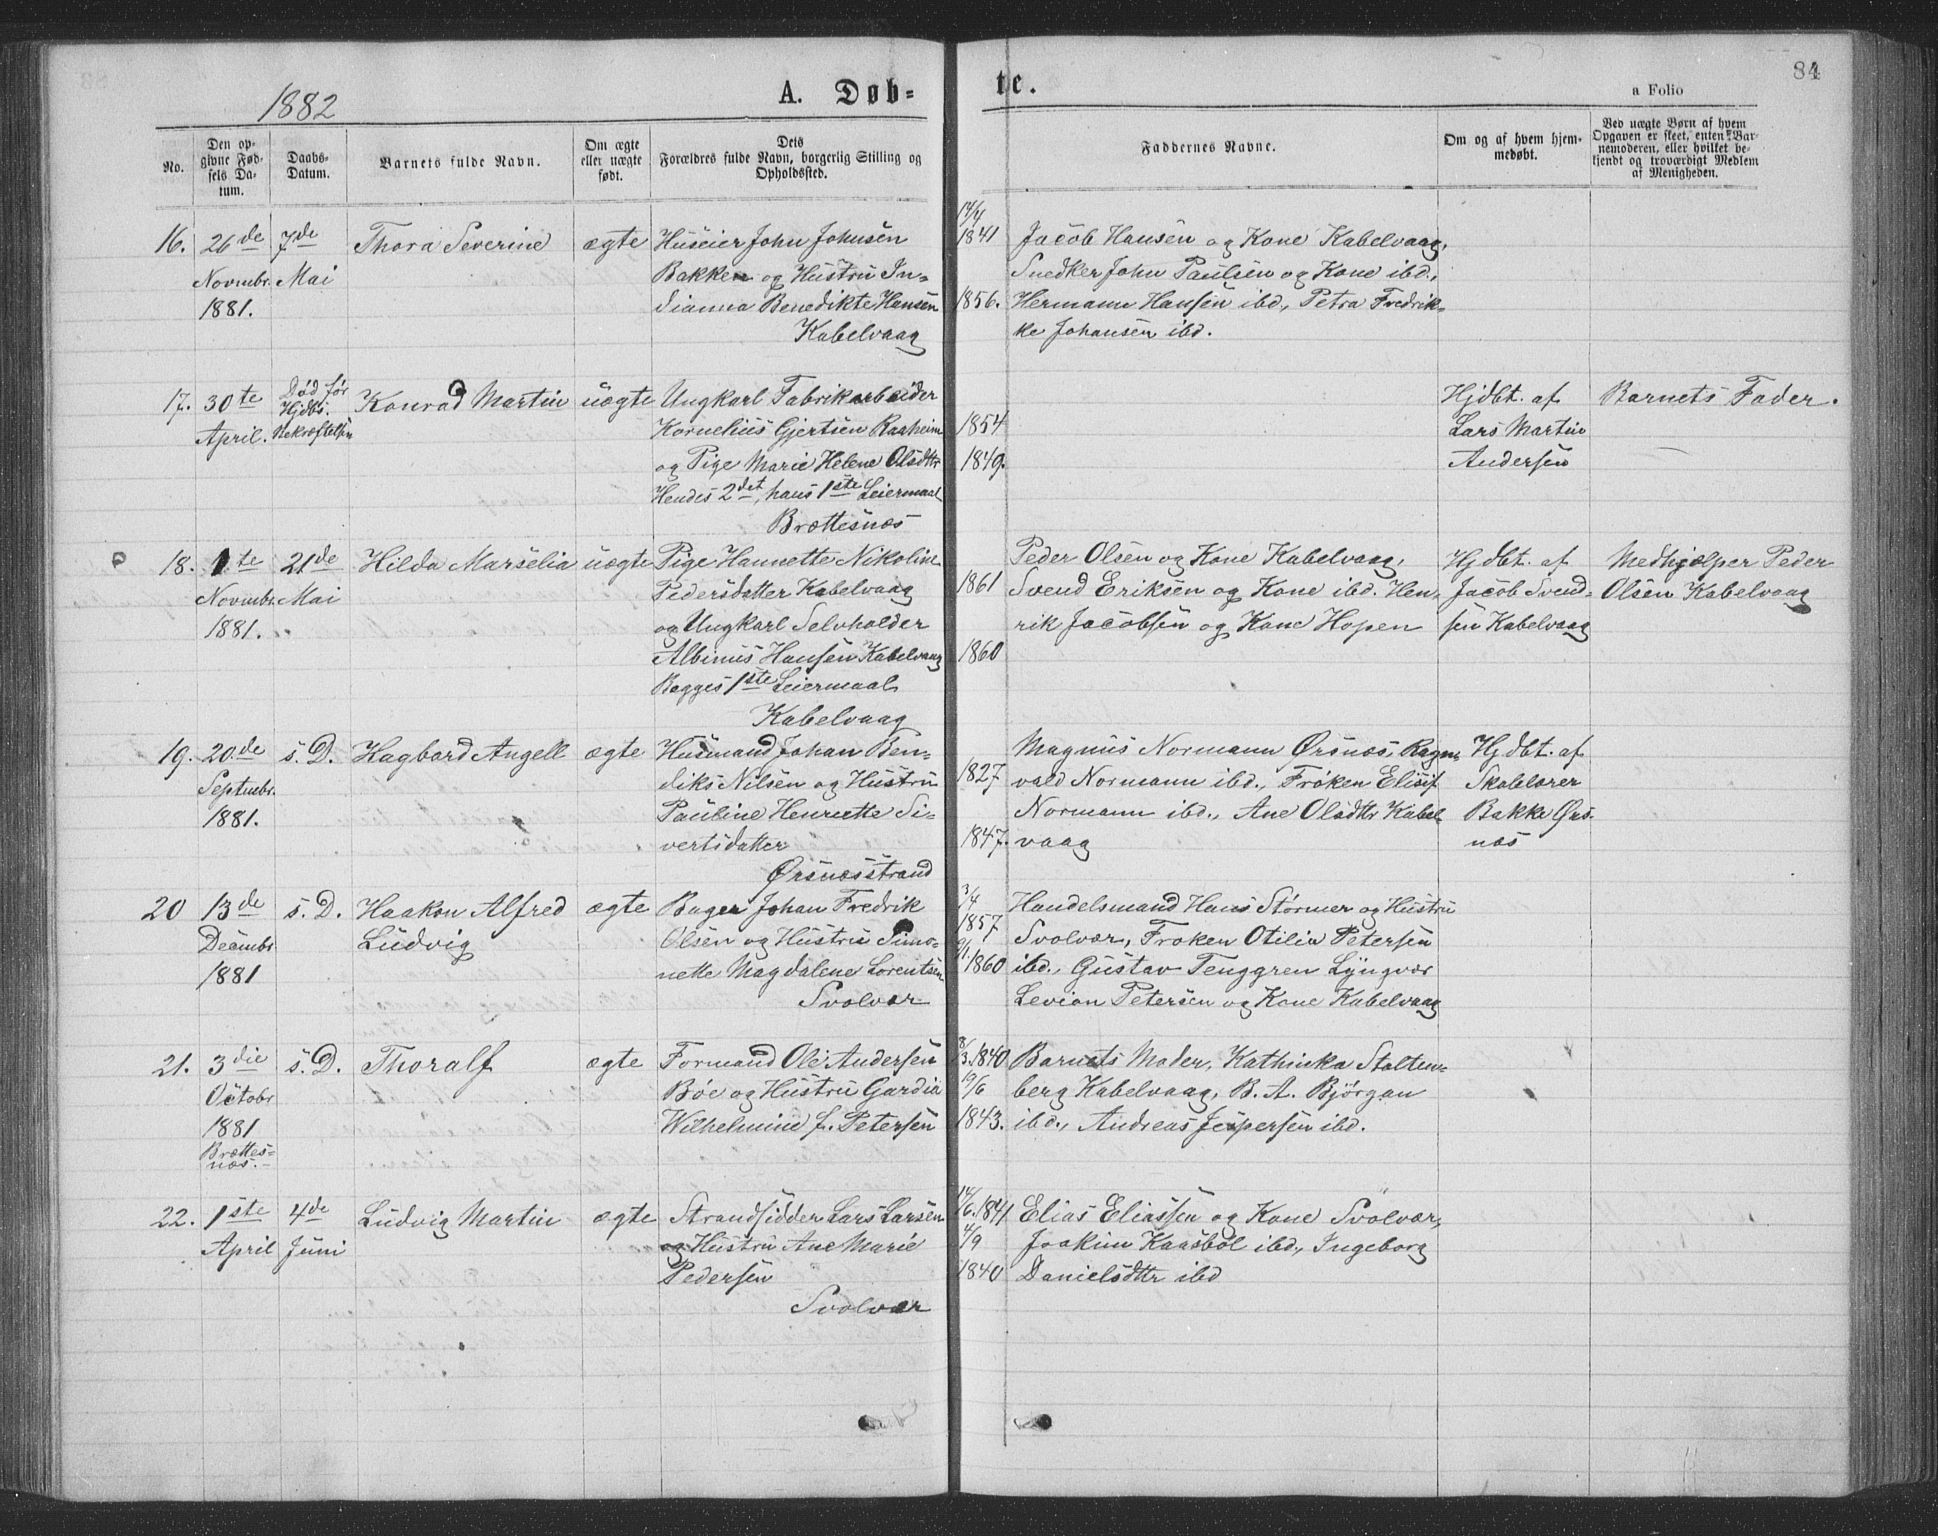 84
1882
A. Døb-
te.
a Folio
No.
Den op-
givne Fød-
sels Da-
tum.
Daabs-
Datum.
Barnets fulde Navn.
Om ægte
eller uægte
født.
Dets
Forældres fulde Navn, borgerlig Stilling og
Opholdssted.
Faddernes Navne.
Om og af hvem hjem-
medøbt.
Ved uægte Børn af hvem
Opgaven er skeet, enten Bar-
nemoderen, eller hvilket be-
kjendt og troværdigt Medlem
af Menigheden.
16.
26de
Novmbr.
1881.
7de
Mai
Thora Severine
ægte
Huseier John Johnsen
Bakken og Hustru In-
dianna Benedikte Hansen
Kabelvaag
14/4
1841
1856.
Jacob Hansen og Kone Kabelvaag,
Snedker John Paulsen og Kone ibd.,
Hermann Hansen ibd., Petra Fredrik-
ke Johansen ibd.
17.
30te
April.
Død før
Hjdbs.
Bekræftelsen
Konrad Martin
uægte
Ungkarl Fabrikarbeider
Kornelius Gjertsen Raaheim
og Pige Marie Helene Olsdttr
Hendes 2det, hans 1ste Leiermaal
Brættesnæs
1854
1849.
Hjdbt. af
Lars Martin
Andersen
Barnets Fader.
18.
1te
Novmbr.
1881.
21de
Mai
Hilda Marselia
uægte
Pige Hannette Nikoline
Pedersdatter Kabelvaag
og Ungkarl Selvholder
Albinus Hansen Kabelvaag
Begges 1ste Leiermaal
Kabelvaag
1861
1860
Peder Olsen og Kone Kabelvaag,
Svend Eriksen og Kone ibd. Hen-
rik Jacobsen og Kone Hopen
Hjdbt. af
Jacob Svend-
sen Kabelvaag
Medhjælper Peder
Olsen Kabelvaag
19.
20.de
Septmbr.
1881.
s. D.
Hagbard Angell
ægte
Husmand Johan Ben-
diks Nilsen og Hustru
Pauline Henriette Si-
vertsdatter
Ørsnæsstrand
1827
1847.
Magnus Normann Ørsnæs, Ragn-
vald Normann ibd., Frøken Elisif
Normann ibd., Ane Olsdttr Kabel-
vaag
Hjdbt. af
Skolelærer
Bakke Ørs-
næs
20
13de
Decmbr.
1881
s. D.
Haakon Alfred
Ludvig
ægte
Bager Johan Fredrik
Olsen og Hustru Simo-
nette Magdalene Lorentsen
Svolvær
3/4
1857
9/1.1860
Handelsmand Hans Størmer og Hustru
Svolvær, Frøken Otilia Petersen
ibd., Gustav Tenggren Lyngvær
Levion Petersen og Kone Kabelvaag
21.
3die
Octobr
1881
Brættes-
næs.
s. D.
Thoralf
ægte
Formand Ole Andersen
Bøe og Hustru Gardia
Wilhelmine f. Petersen
8/3.1840
19/6
1843.
Barnets Moder, Kathinka Stolten-
berg Kabelvaag, B. A. Bjørgan
ibd., Andreas Jespersen ibd.
22.
1ste
April
4de
Juni
Ludvig Martin
ægte
Strandsidder Lars Larsen
og Hustru Ane Marie
Pedersen
Svolvær
14/6.1841
4/9
1840
Elias Eliassen og Kone Svolvær,
Joakim Kaasbøl ibd., Ingeborg
Danielsdttr ibd